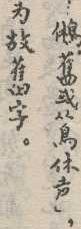 ：鵂，舊或从鳥休声」，
为故舊的字。